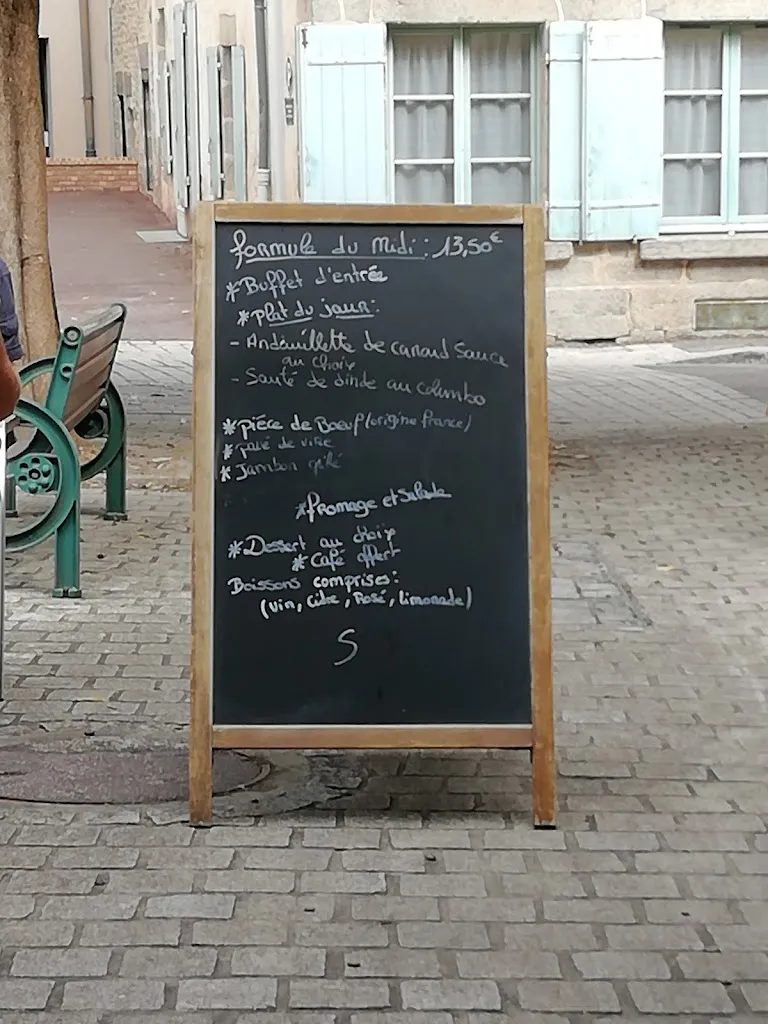 formule du Midi : 13,50€
*Buffet d'entrée
*plat du jour:
- Andouillette de canard Sauce
au choix
- Sauté de dinde au columbo
*pièce de Boeuf (origine france)
*pavé de
*Jambon grillé
*fromage et Salade
*Dessert au choix
*Café offert
Boissons comprises:
(Vin, Cidre, Rosé, limonade)
S